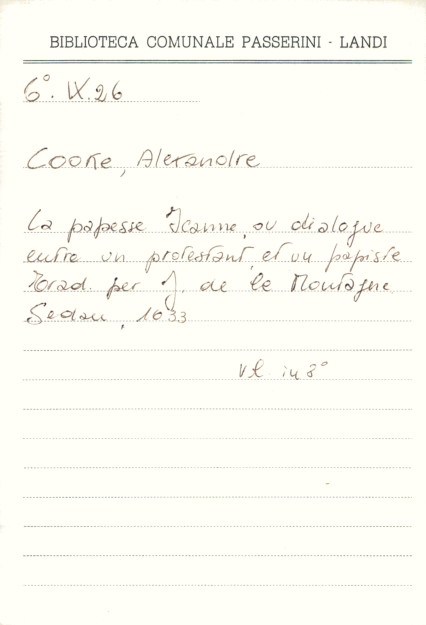 BIBLIOTECA COMUNALE PASSERINI - LANDI
6°. IX.26
Cooke, Alexandre
La papesse Jeanne, ou dialogue
entre un protestant et un papiste
Trad. per J. de le Montagne
Sedan, 1633
vl. in 8°